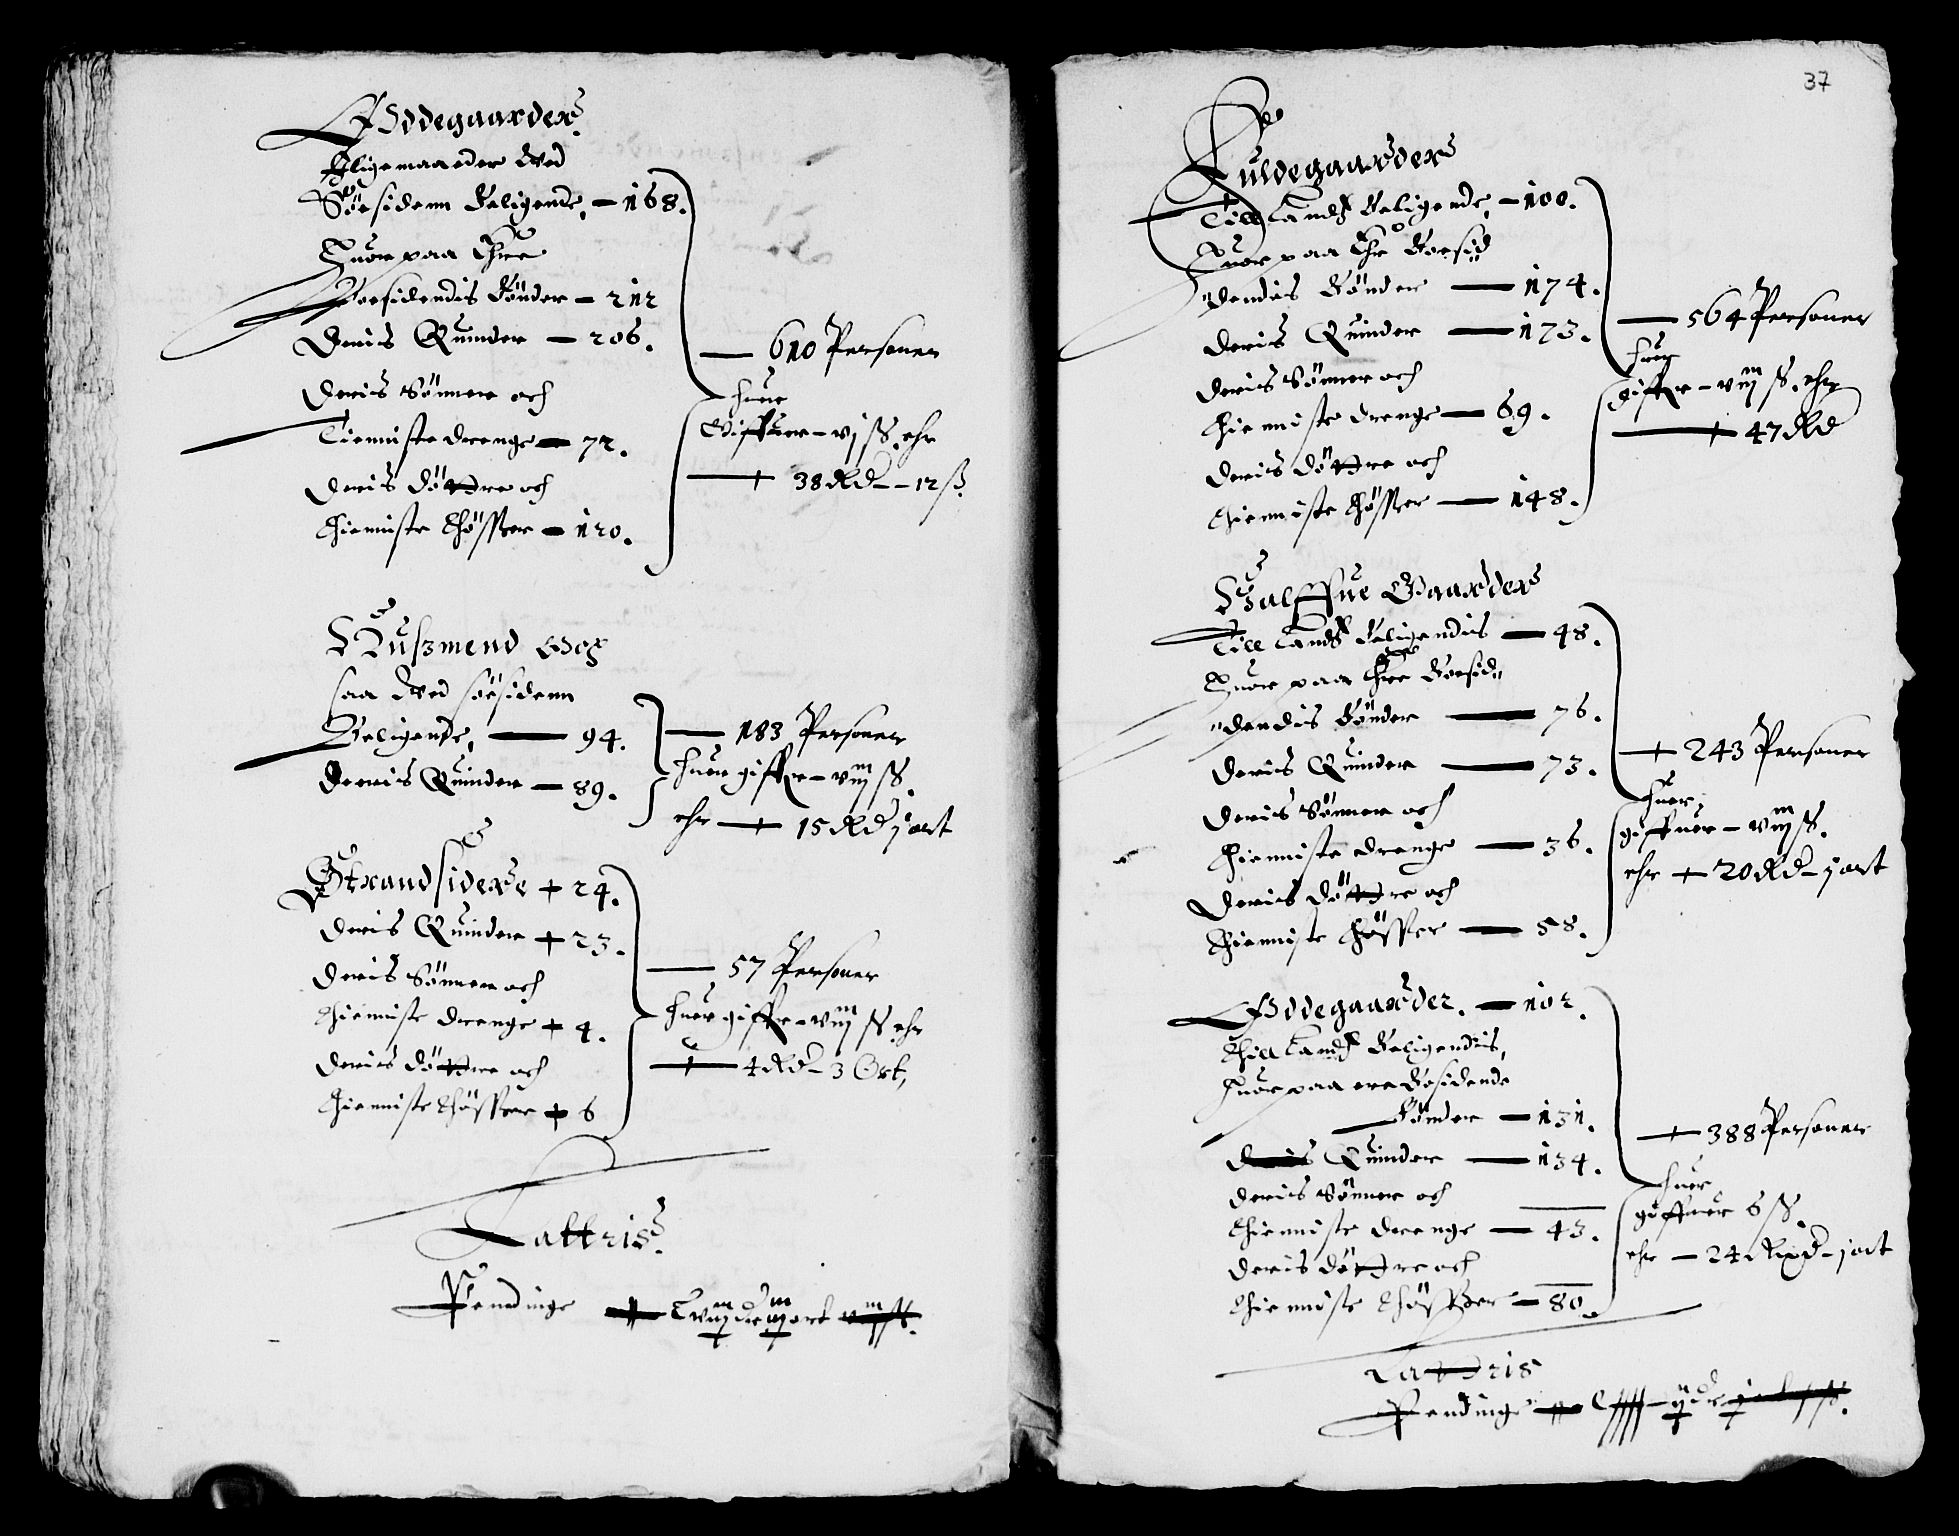 Ødegaarder
Aligemaaeder Ved
Søesidenn Beligende, – 168.
Huor paa Ehre
Boesidendis Bønder – 212
Deris Quinder – 206.
Deris Sønner och
Tienniste drenge – 72.
Deris døttre och
thienniste thøffuer – 120.
610 Personer
huer
Giffuer – vj ss. ehr
38 Rd – 12 ß
Huszmend Och
saa Ved søesidenn
Beligende, – 94.
Deeris Quinder – 89.
183 Personer
huer giffer – viij ss.
ehr – 15 Rd j ort
Strandsidere + 24.
Deris Quinder + 23.
Deris Sønner och
thienniste drenge + 4.
Deris døttre och
thienniste thøffuer + 6
57 Personer
huer giffer – viij ss. ehr
4 Rd – 3 Ort,
Lattris.
Penndinge
37
Fuldegaarder
Till Landz Beligende, – 100.
Huor paa Ehr Boesid
"dendis Bønder – 174.
Deris Quinder – 173.
Deris Sønner och
thienniste drenge – 69.
Deris døttre och
thienniste thøffuer – 148.
564 Personer
huer
giffer – viij ss. ehr
47 Rd
Halffue Gaarder
Till Landz Beligendis – 48.
Huor paa Ehre Boesid"
"dendis Bønder – 76.
Deris Quinder – 73.
Deris Sønner och
thienniste drenge – 36.
Deris døttre och
thienniste thøffuer – 58.
243 Personer
huer
giffuer – viij ss.
ehr + 20 Rd – j ort
Ødegaarder. – 102.
thill Landz Beligendis,
Huor paa ere Bosidende
Bønder – 131.
Deris Quinder – 134.
Deris Sønner och
thienniste drenge – 43.
Deris døttre och
thienniste thøffuer – 80.
388 Personer
huer
giffuer 6 ss.
ehr – 24 Rixd – j ort
Lattris
Pendinge